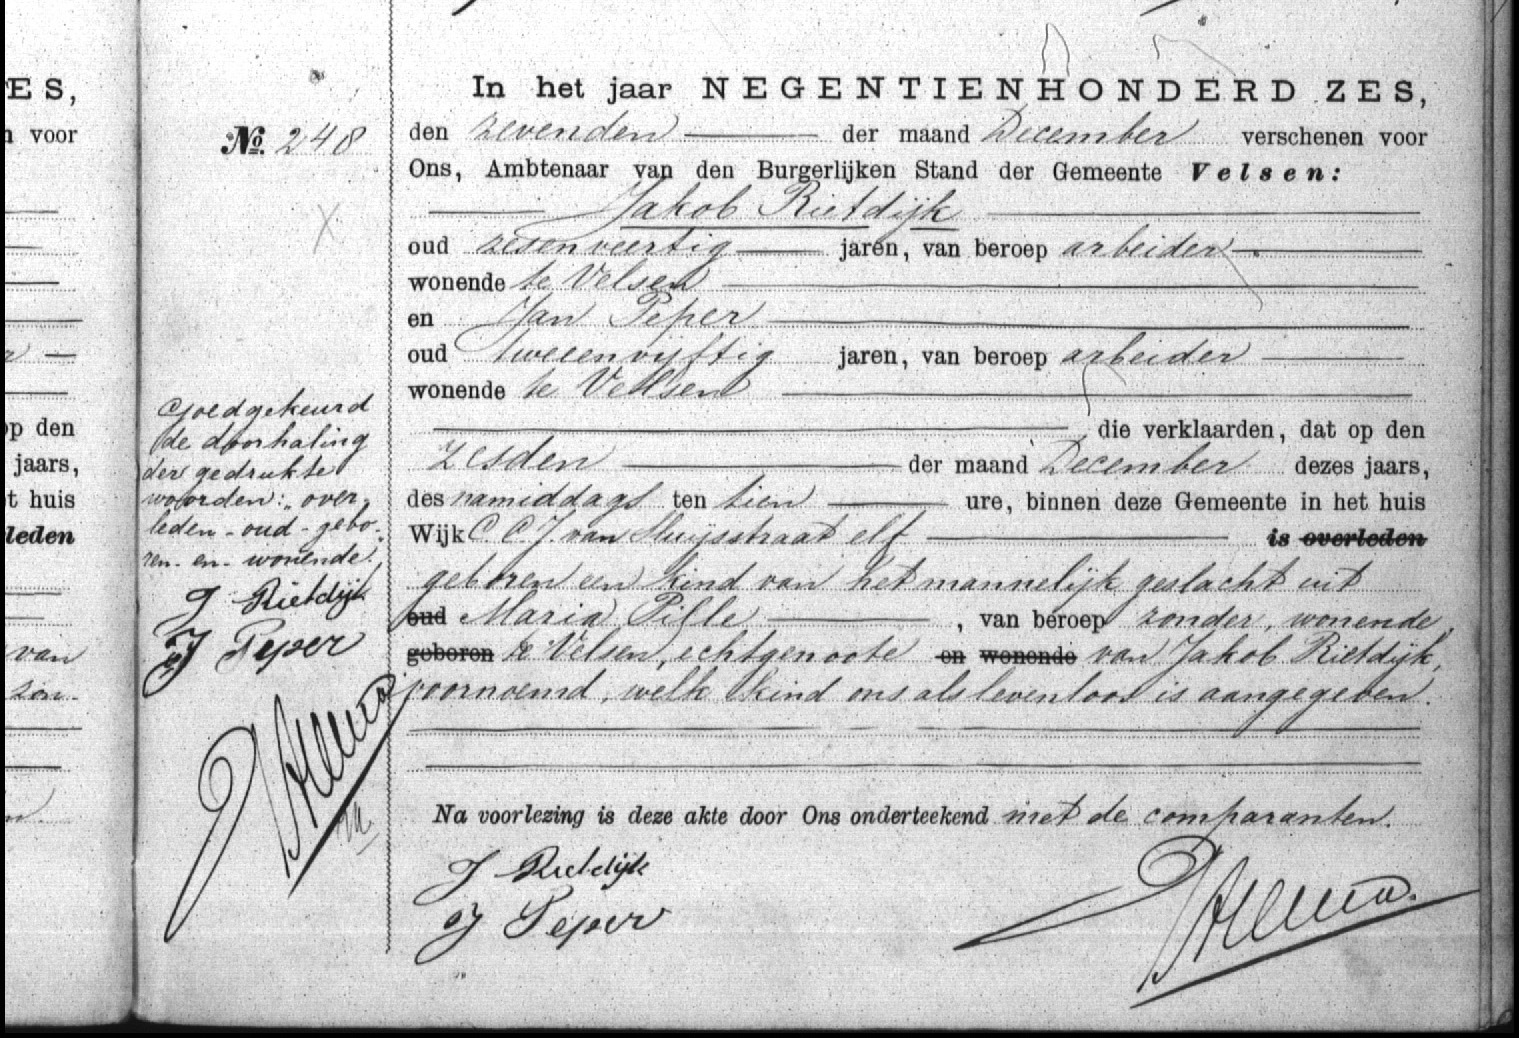 ES,
voor
op den
jaars,
t huis
leden
van
zon.
No. 248
Goedgekeurd
de doorhaling
der gedrukte
woorden: „over-
leden - oud - gebo-
ren - en - wonende.
J Rietdijk
J Peper
In het jaar NEGENTIENHONDERD ZES,
den zevenden der maand December verschenen voor
Ons, Ambtenaar van den Burgerlijken Stand der Gemeente Velsen:
Jakob Rietdijk
oud zesenveertig jaren, van beroep arbeider
wonende te Velsen
en Jan Peper
oud tweeenvijftig jaren, van beroep arbeider
wonende te Velsen
die verklaarden, dat op den
zesden der maand December dezes jaars,
des namiddags ten tien ure, binnen deze Gemeente in het huis
Wijk C. C. J. van Sluijsstraat elf is overleden
geboren een kind van het mannelijk geslacht uit
oud Maria Pille, van beroep zonder, wonende
geboren te Velsen, echtgenoote en wonende van Jakob Rietdijk,
voornoemd, welk kind ons als levenloos is aangegeven.
Na voorlezing is deze akte door Ons onderteekend met de comparanten.
J Rietdijk
J Peper